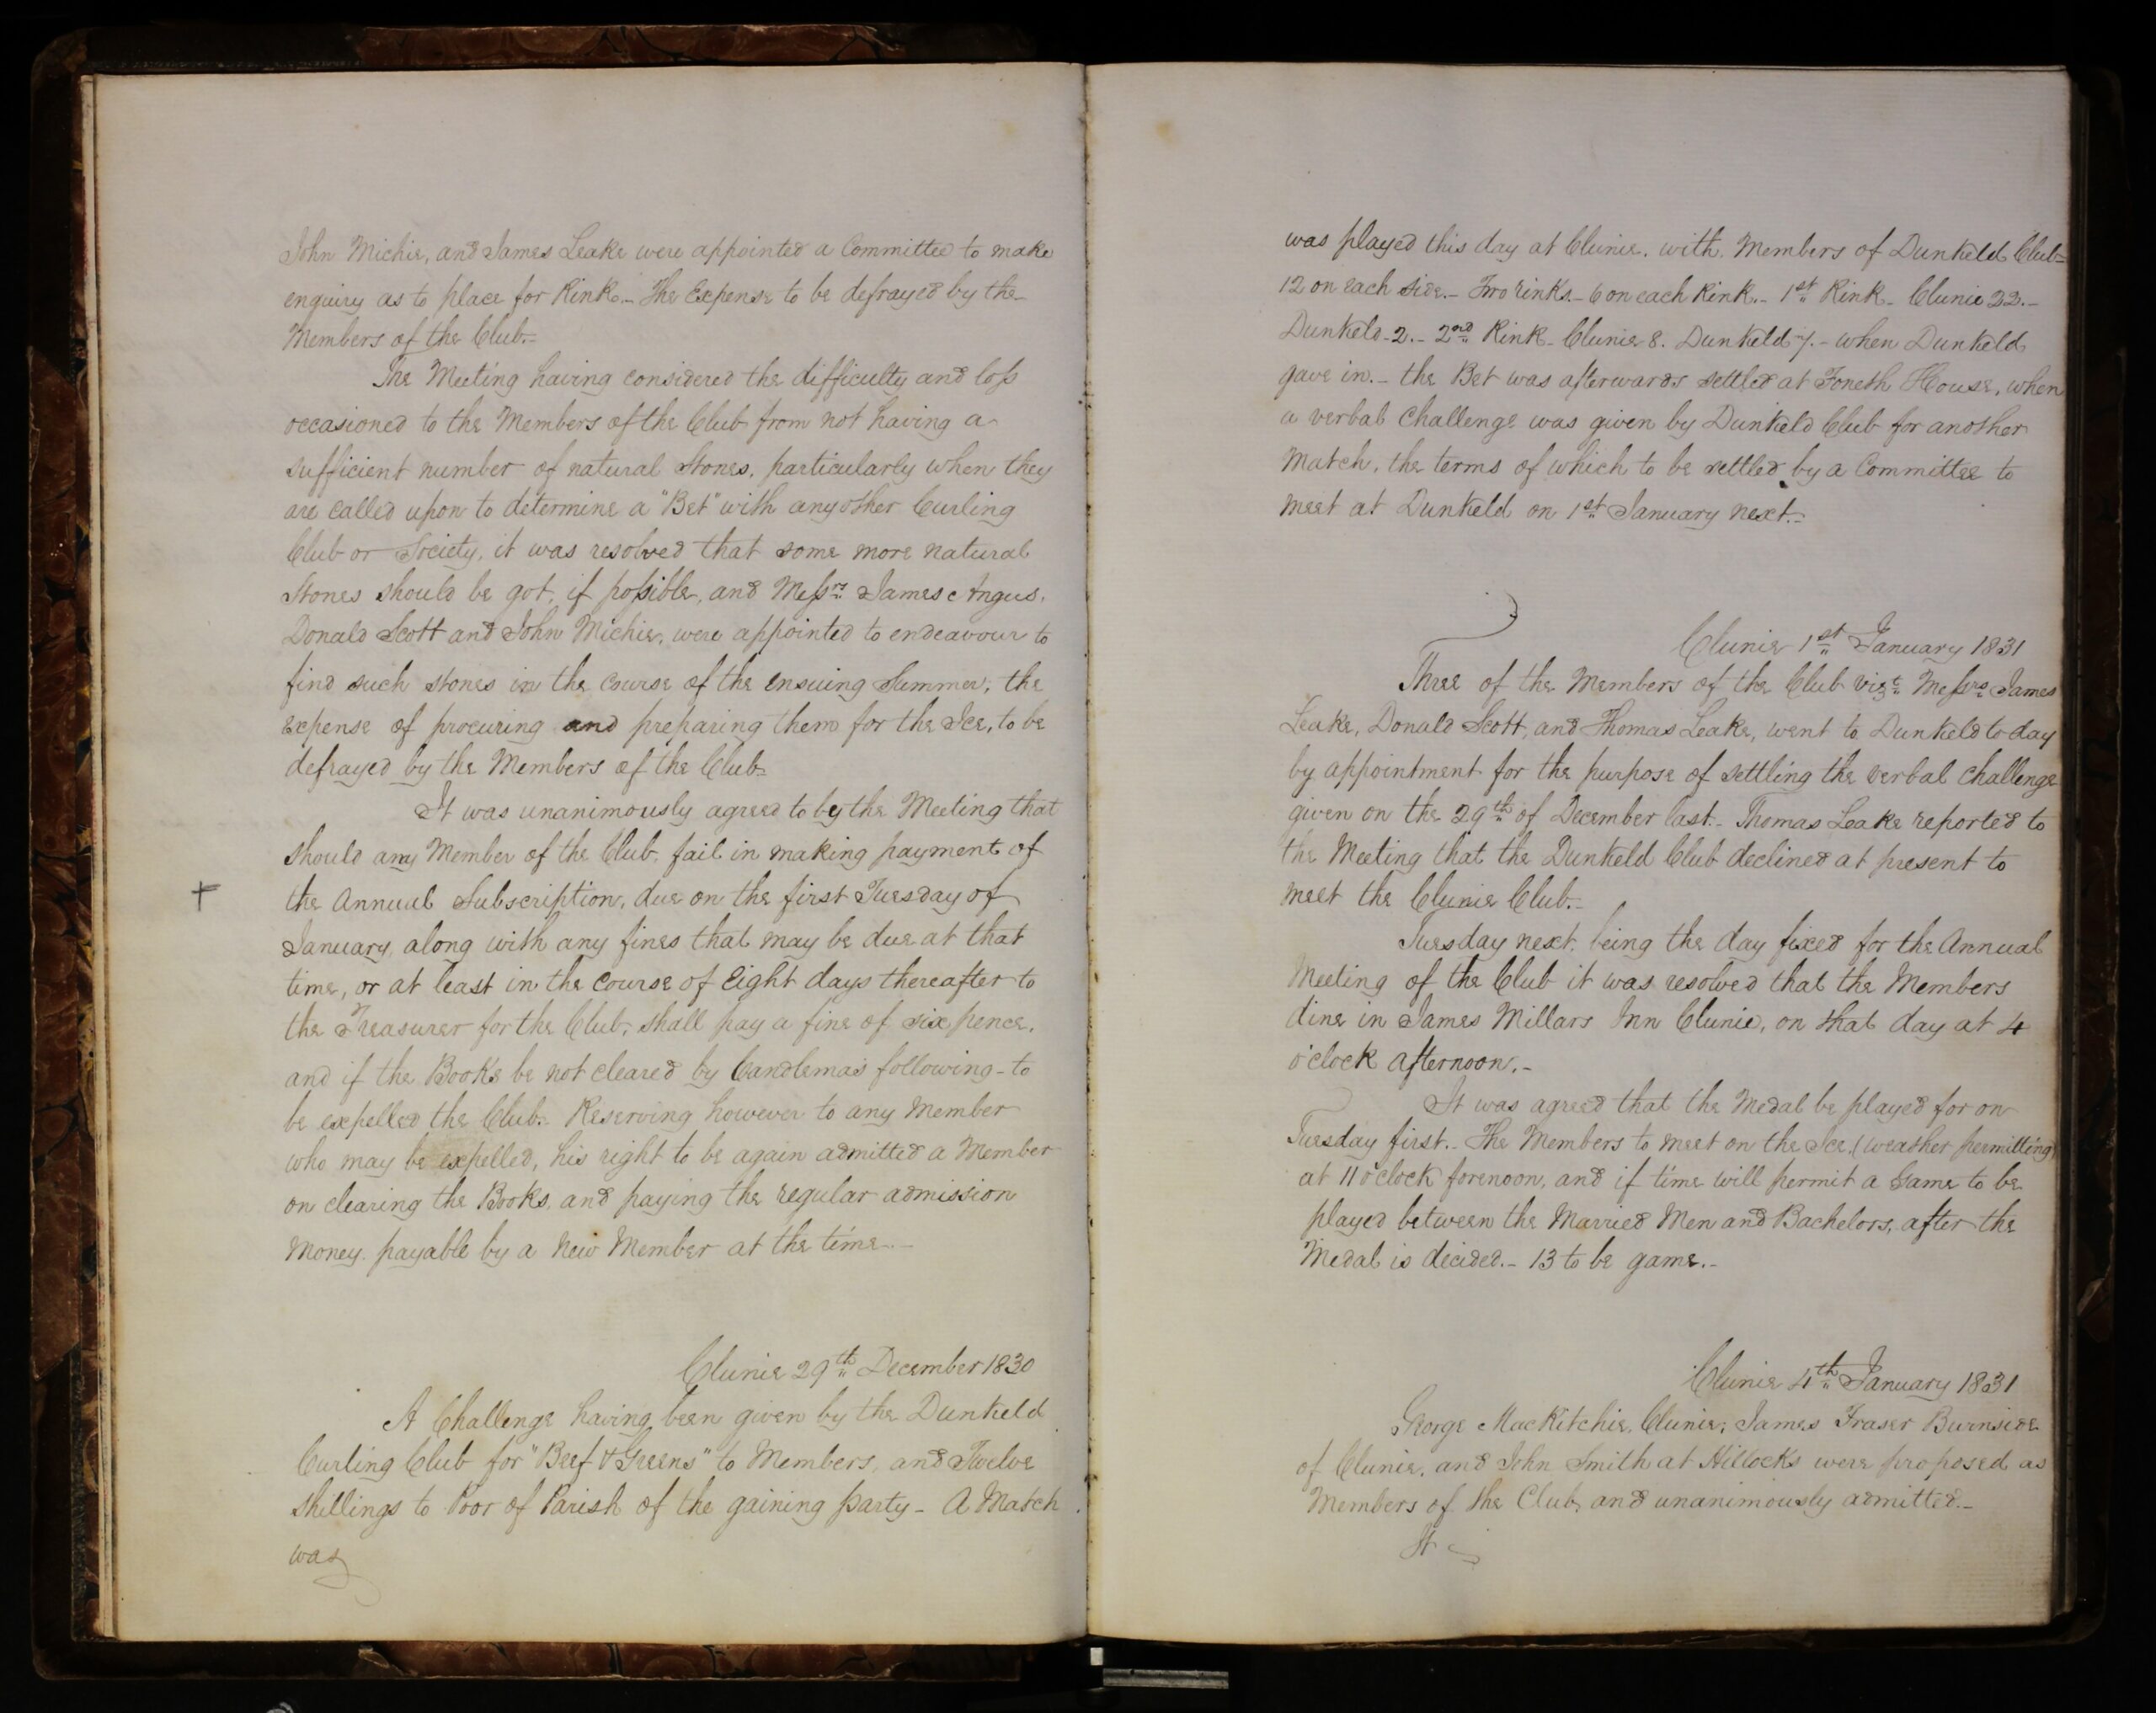 John Michie, and James Leake were appointed a Committee to make
enquiry as to place for Rink.- The Expense to be defrayed by the
Members of the Club.-
The Meeting having considered the difficulty and loss
occasioned to the Members of the Club from not having a
sufficient number of natural Stones, particularly when they
are called upon to determine a "Bet" with any other Curling
Club or Society, it was resolved that some more natural
Stones should be got, if possible, and Messrs James Angus,
Donald Scott and John Michie, were appointed to endeavour to
find such stones in the course of the ensuing Summer, the
expense of procuring and preparing them for the Ice, to be
defrayed by the Members of the Club-
It was unanimously agreed to by the Meeting that
should any Member of the Club, fail in making payment of
+ the Annual Subscription, due on the first Tuesday of
January, along with any fines that may be due at that
time, or at least in the course of Eight days thereafter to
the Treasurer for the Club, shall pay a fine of six pence,
and if the Books be not cleared by Candlemas following- to
be expelled the Club.- Reserving however to any Member
who may be expelled, his right to be again admitted a Member
on clearing the Books, and paying the regular admission
Money payable by a New Member at the time.-
Clunie 29th December 1830
A Challenge having been given by the Dunkeld
Curling Club for "Beef & Greens" to Members, and Twelve
shillings to Poor of Parish of the gaining party- A Match
was
was played this day at Clunie, with Members of Dunkeld Club-
12 on each side.- Two rinks.- 6 on each Rink.- 1st Rink- Clunie 22.-
Dunkeld-2.- 2nd Rink- Clunie 8. Dunkeld 7.- when Dunkeld
gave in.- the Bet was afterwards settled at Foneth House, when
a verbal Challenge was given by Dunkeld Club for another
Match, the terms of which to be settled by a Committee to
meet at Dunkeld on 1st January next.-
Clunie 1st January 1831
Three of the Members of the Club vizt Messrs James
Leake, Donald Scott, and Thomas Leake, went to Dunkeld to day
by appointment for the purpose of settling the verbal challenge
given on the 29th of December last.- Thomas Leake reported to
the Meeting that the Dunkeld Club declined at present to
meet the Clunie Club.-
Tuesday next being the day fixed for the Annual
Meeting of the Club it was resolved that the Members
dine in James Millars Inn Clunie, on that day at 4
o'clock afternoon.-
It was agreed that the Medal be played for on
Tuesday first.- The Members to meet on the Ice, (weather permitting)
at 11 o'clock forenoon, and if time will permit a Game to be
played between the Married Men and Bachelors, after the
Medal is decided.- 13 to be game.-
Clunie 4th January 1831
George MacKitchie, Clunie, James Fraser Burnside
of Clunie, and John Smith at Hillocks were proposed as
Members of the Club, and unanimously admitted.-
It